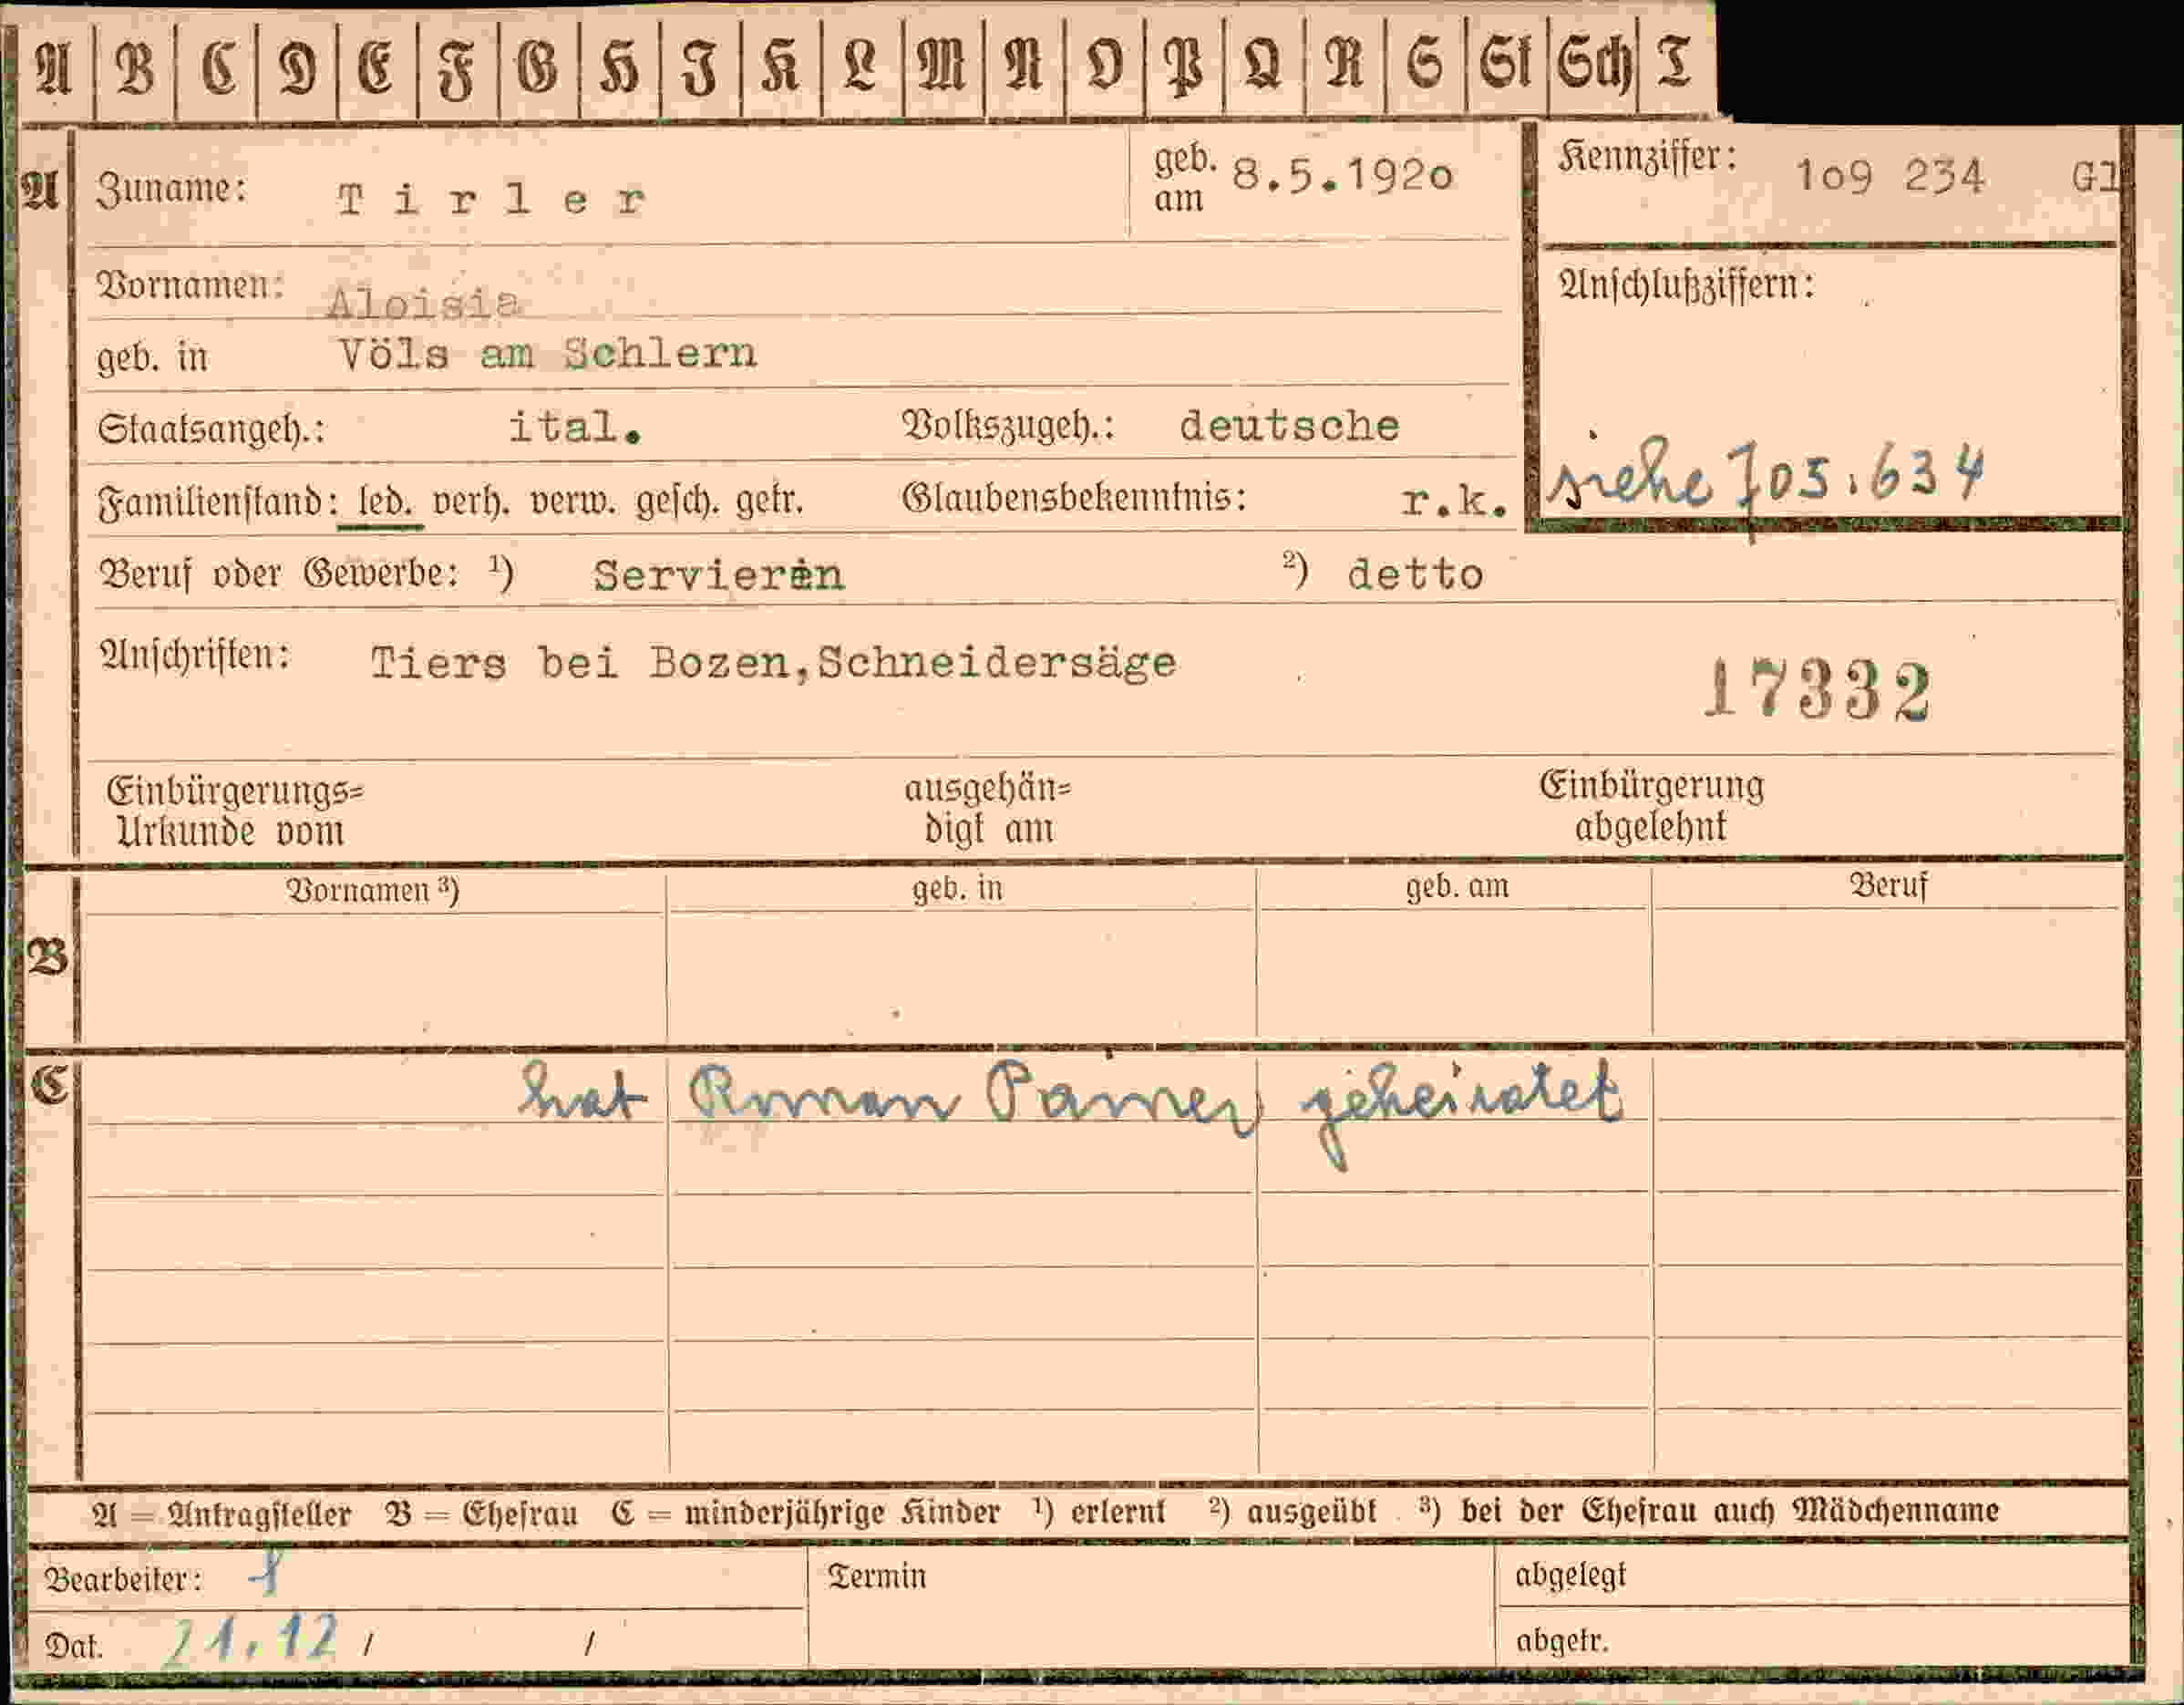 A B C D E F G H I K L M N O P Q R S St Sch T
A Zuname: Tirler geb. am 8.5.1920 Kennziffer: 109 234 Gl
Vornamen: Aloisia Anschlußziffern:
geb. in Völs am Schlern
Staatsangeh.: ital. Volkszugeh.: deutsche
siehe 705.634
Familienstand: led. verh. verw. gesch. getr. Glaubensbekenntnis: r.k.
Beruf oder Gewerbe: ¹) Servierin ²) detto
Anschriften: Tiers bei Bozen,Schneidersäge
17332
Einbürgerungs= ausgehän= Einbürgerung
Urkunde vom digt am abgelehnt
Vornamen ³) geb. in geb. am Beruf
B
C hat Roman geheiratet
A = Antragsteller B = Ehefrau C = minderjährige Kinder ¹) erlernt ²) ausgeübt ³) bei der Ehefrau auch Mädchenname
Bearbeiter: Termin abgelegt
Dat. 21.12 / / abgetr.